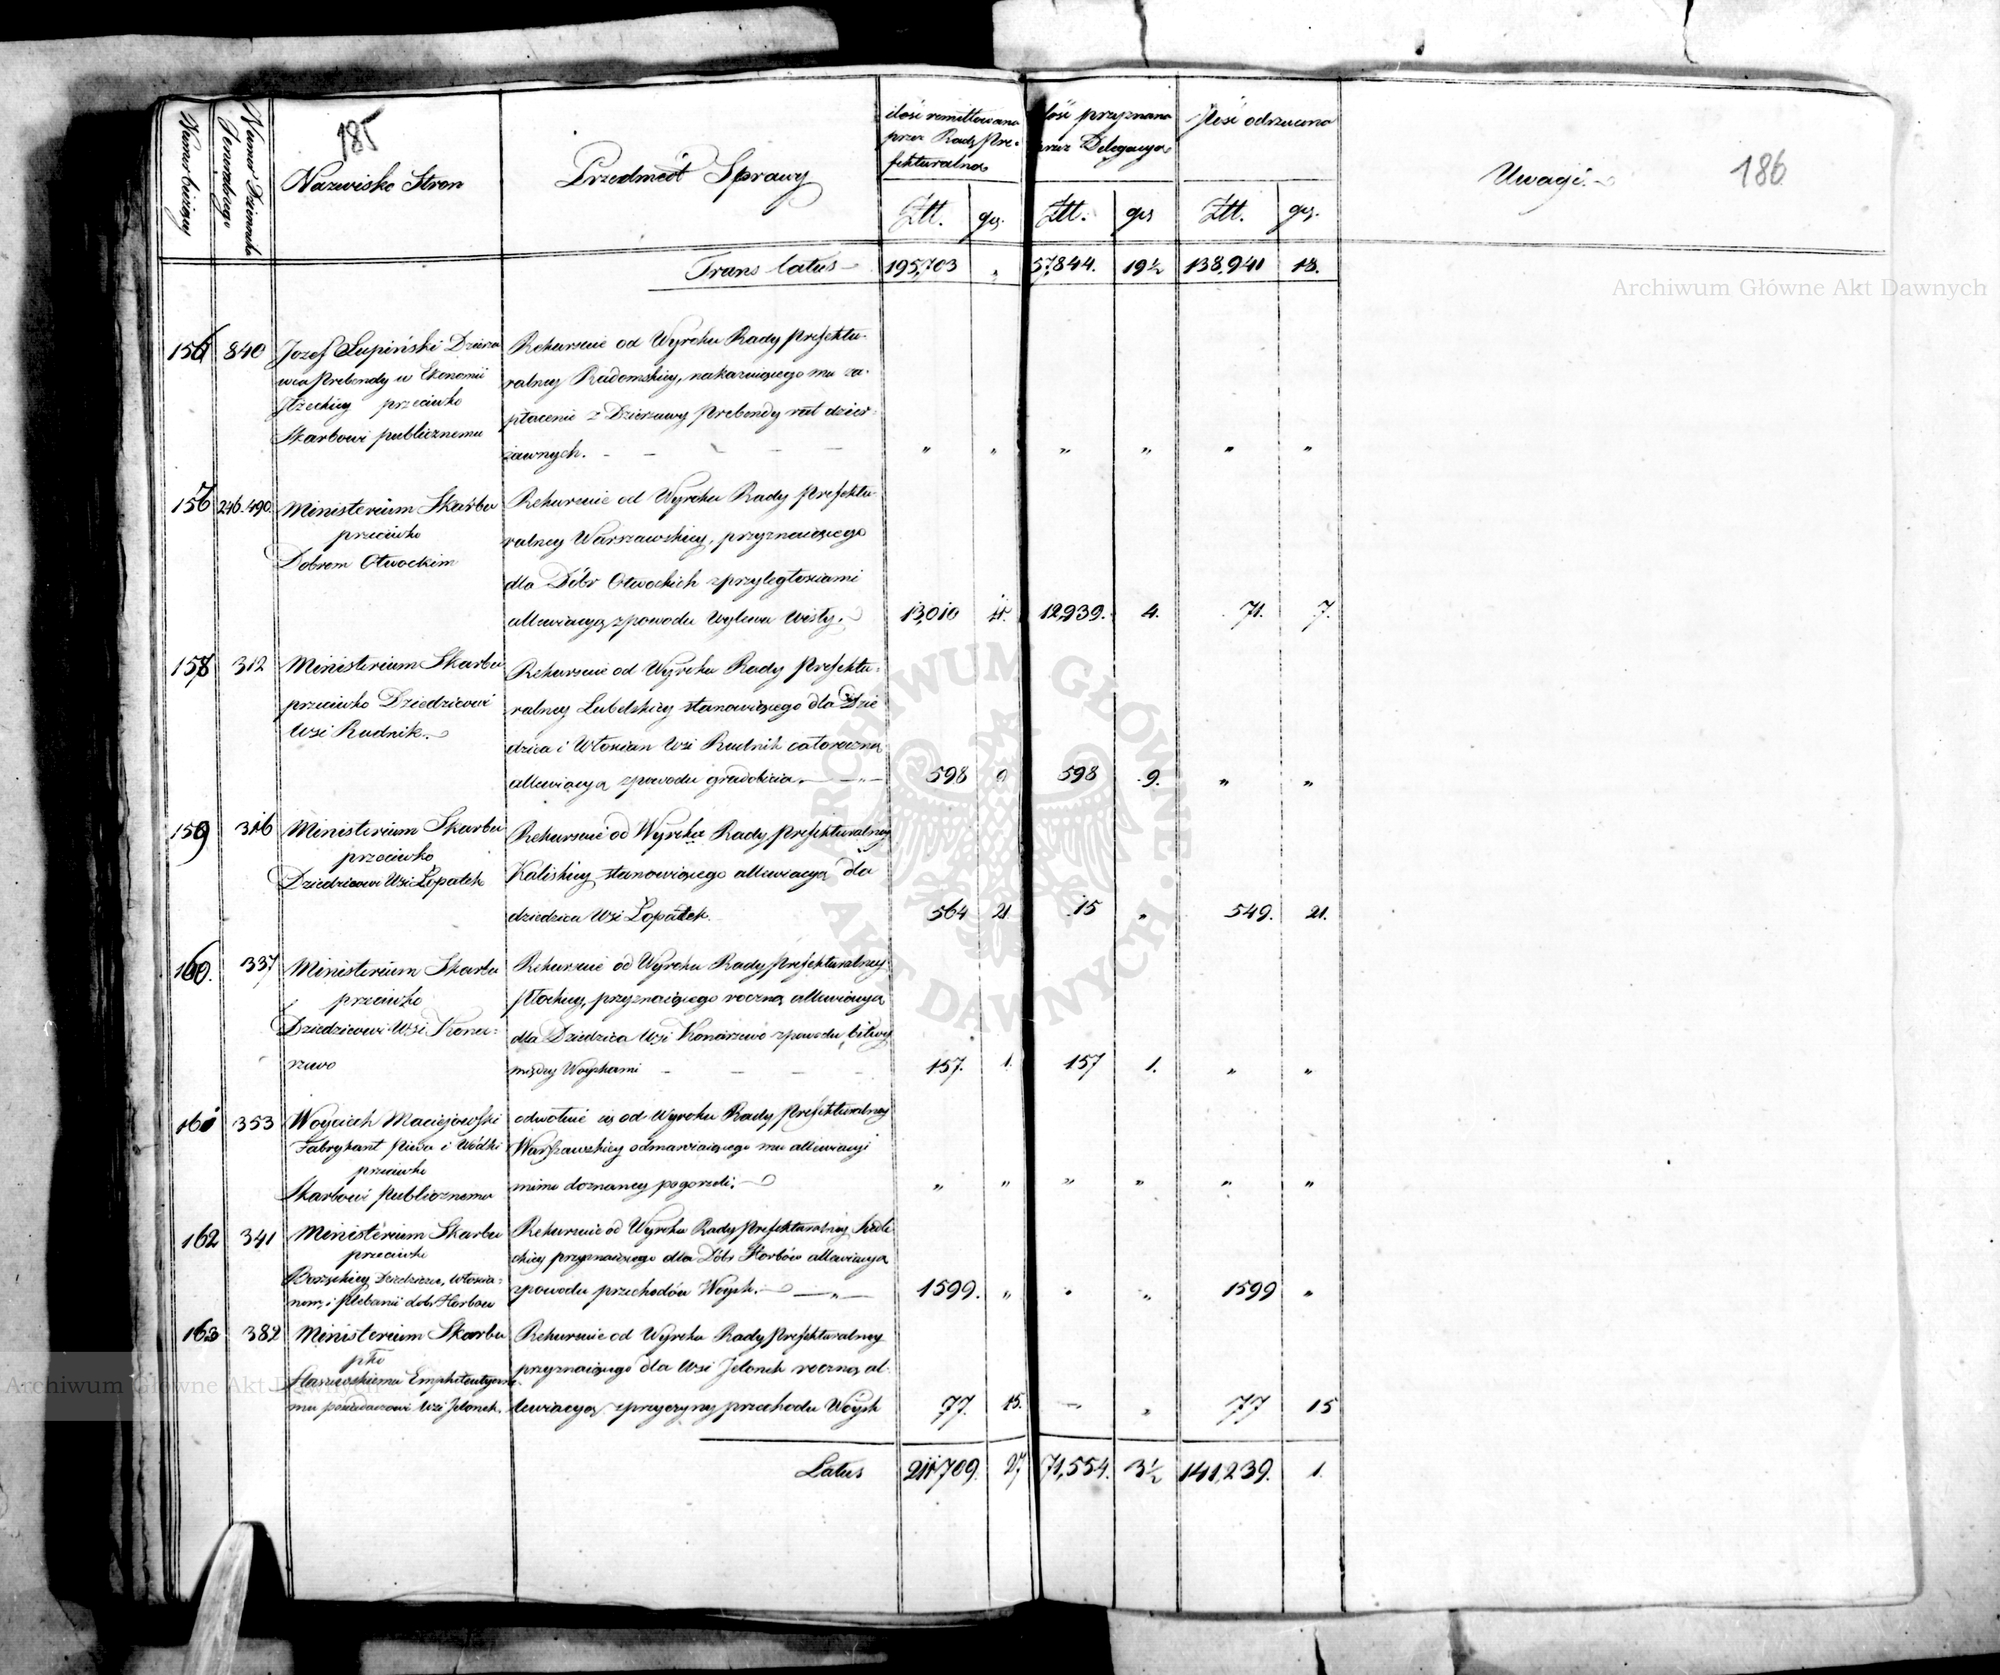 185
186
Numer bieżący
Numer Dziennika
Generalnego
Nazwisko Stron
Przedmiot Sprawy
ilość remittowana
przez Radę Pre-
fekturalną
ilość przyznana
przez Delegacyą
Ilość odrzucona
Uwagi.
Złt. gr. Złt. gr Złt. gr.
Trans latus 195,703 „ 57,844. 19½ 138,941 18.
Archiwum Główne Akt Dawnych
156 840 Jozef Łupiński Dzierża
wca Prebendy w Ekonomii
Iłżeckiey przeciwko
Skarbowi publicznemu
Rekursuie od Wyroku Rady Prefektu-
ralney Radomskiey, nakazuiącego mu za-
płacenie z Dzierżawy Prebendy rat dzier-
żawnych. „ „ „ „ „ „
157 246.490. Ministerium Skarbu
przeciwko
Dobrom Otwockim
Rekursuie od Wyroku Rady Prefektu-
ralney Warszawskiey, przyznaiącego
dla Dóbr Otwockich z przyległosciami
allewiacyą z powodu Wylewu Wisły. 13,010 11. 12,939. 4. 71. 7.
158 312 Ministerium Skarbu
przeciwko Dziedzicowi
Wsi Rudnik.
Rekursuie od Wyroku Rady Prefektu-
ralney Lubelskiey stanowiącego dla Dzie
dzica i Włościan Wsi Rudnik całoroczną
allewiacyą z powodu gradobicia. 598 9 598 9. „ „
159 316 Ministerium Skarbu
przeciwko
Dziedzicowi Wsi Łopatek
Rekursuie od Wyroku Rady Prefekturalney
Kaliskiey stanowiącego allewiacyą dla
dziedzica Wsi Łopatek. 564 21 15 „ 549. 21.
160. 337 Ministerium Skarbu
przeciwko
Dziedzicowi Wsi Kona-
rzewo
Rekursuie od Wyroku Rady Prefekturalney
Płockiey, przyznaiącego roczną allewiacyą
dla Dziedzica Wsi Konarzewo z powodu bitwy
między Woyskami 157. 1. 157 1. „ „
161 353 Woyciech Macieiowski
Fabrykant Piwa i Wódki
przeciwko
Skarbowi Publicznemu
odwołuie się od Wyroku Rady Prefekturalney
Warszawskiey odmawiaiącego mu allewiacyi
mimo doznaney pogorzeli. „ „ „ „ „ „
162 341 Ministerium Skarbu
przeciwko
Dziedzicowi, Włościa-
nom, i Plebanii dobr Horbow
Rekursuie od Wyroku Rady Prefekturalney Siedle
ckiey przyznaiącego dla Dóbr Horbów allewiacyą
z powodu przechodów Woysk. 1599. „ „ „ 1599 „
163 382 Ministerium Skarbu
pko
Staszewskiemu Emphiteutyczne
mu posiadaczowi Wsi Jelonek.
Rekursuie od Wyroku Rady Prefekturalney
przyznaiącego dla Wsi Jelonek roczną al-
lewiacyą z przyczyny przechodu Woysk 77. 15. „ „ 77 15
Latus 211,709. 27 71,554. 3½ 141,239. 1.
ARCHIWUM GŁÓWNE · AKT DAWNYCH ·
Archiwum Główne Akt Dawnych